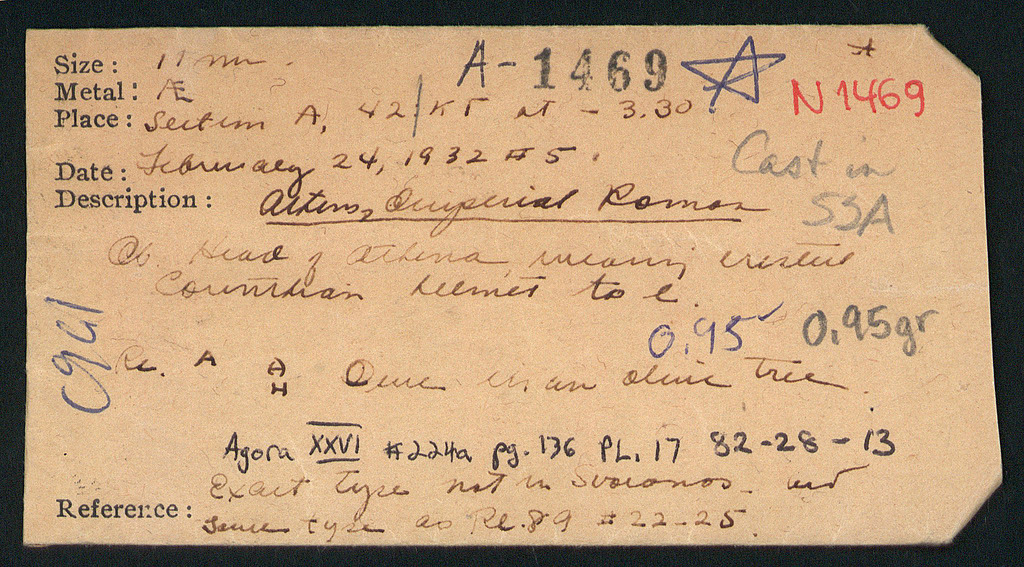 Size: 11 mm.
A-1469
N 1469
Metal: Æ
Place: Section A, 42/ΚΓ at - 3.30
Date: February 24, 1932 #5.
Cast in
SSA
Description: Athens, Imperial Roman
Ob. Head of Athena, wearing crested
Corinthian helmet to l.
0.95 0.95gr
Re. A Θ
H
an olive tree.
Agora XXVI #224a pg. 136 PL. 17 82-28-13
Exact type not in Svoronos. but
Reference: same type as Pl. 89 #22-25